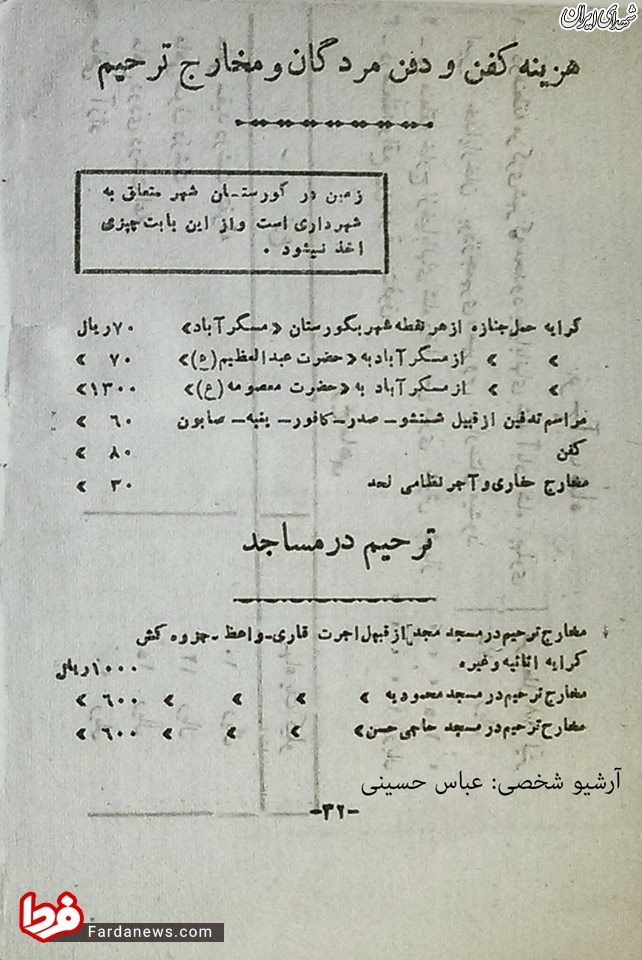 شهدای ایران
هزینه کفن و دفن مردگان و مخارج ترحیم
زمین در گورستان شهر متعلق به
شهرداری است و از این بابت چیزی
اخذ نمیشود .
کرایه حمل جنازه از هر نقطه شهر بگورستان «مسگر آباد» ۷۰ ریال
» » از مسگر آباد به «حضرت عبدالعظیم (ع)» ۷۰ »
» » از مسگر آباد به «حضرت معصومه (ع)» ۱۳۰۰ »
مراسم تدفین از قبیل شستشو - صدر - کافور - پنبه - صابون ۶۰ »
کفن ۸۰ »
مخارج حفاری و آجر نظامی لحد ۳۰ »
ترحیم در مساجد
مخارج ترحیم در مسجد مجد از قبیل اجرت قاری - واعظ - جزوه کش
کرایه اثاثیه و غیره ۱۰۰۰ ریال
مخارج ترحیم در مسجد محمودیه » » » » ۶۰۰ »
مخارج ترحیم در مسجد حاجی حسن » » » » ۶۰۰ »
آرشیو شخصی: عباس حسینی
-۳۲-
فردا
Fardanews.com